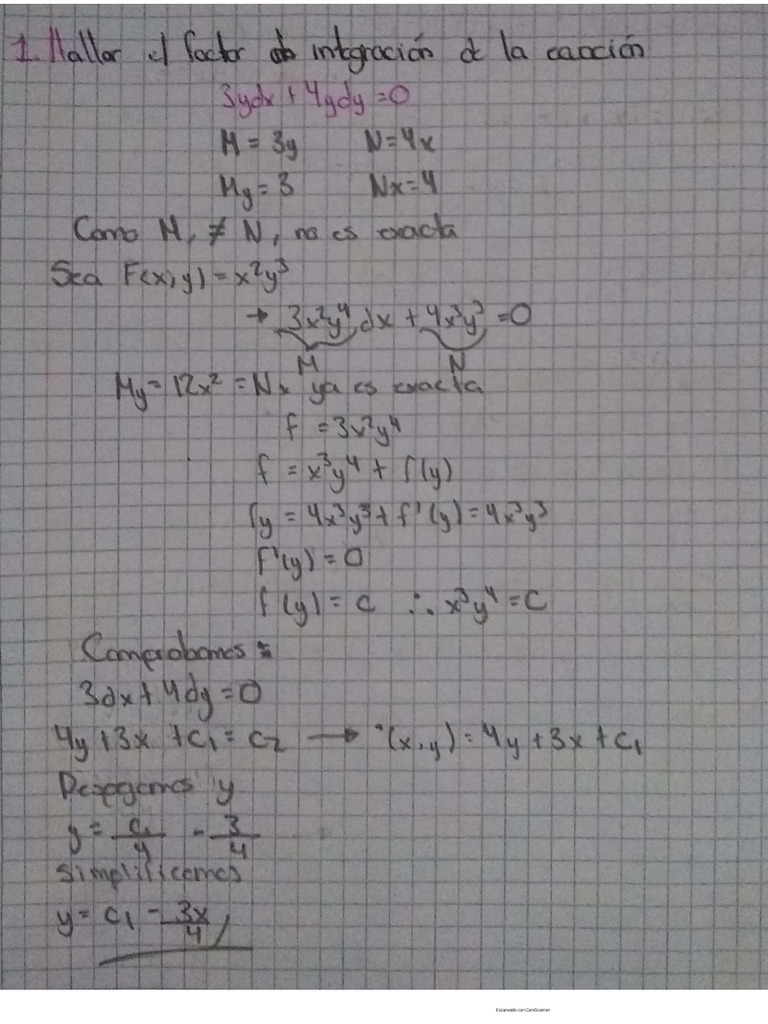 1. Hallar el factor de integración de la ecuación
3ydx + 4ydy = 0
M = 3y N = 4x
My = 3 Nx = 4
Como M, ≠ N, no es exacta
Sea F(x,y) = x²y³
→ 3x²y⁴dx + 4x³y³ = 0
M N
My = 12x² = Nx ya es exacta
f = 3x²y⁴
f = x³y⁴ + f(y)
fy = 4x³y³ + f'(y) = 4x³y³
f'(y) = 0
f(y) = c ∴ x³y⁴ = C
Comprobamos:
3dx + 4dy = 0
4y + 3x + c₁ = c₂ → (x,y) = 4y + 3x + c₁
Despegamos y
y = c₁/4 - 3/4
Simplificamos
y = c₁ - 3x/4
Escaneado con CamScanner